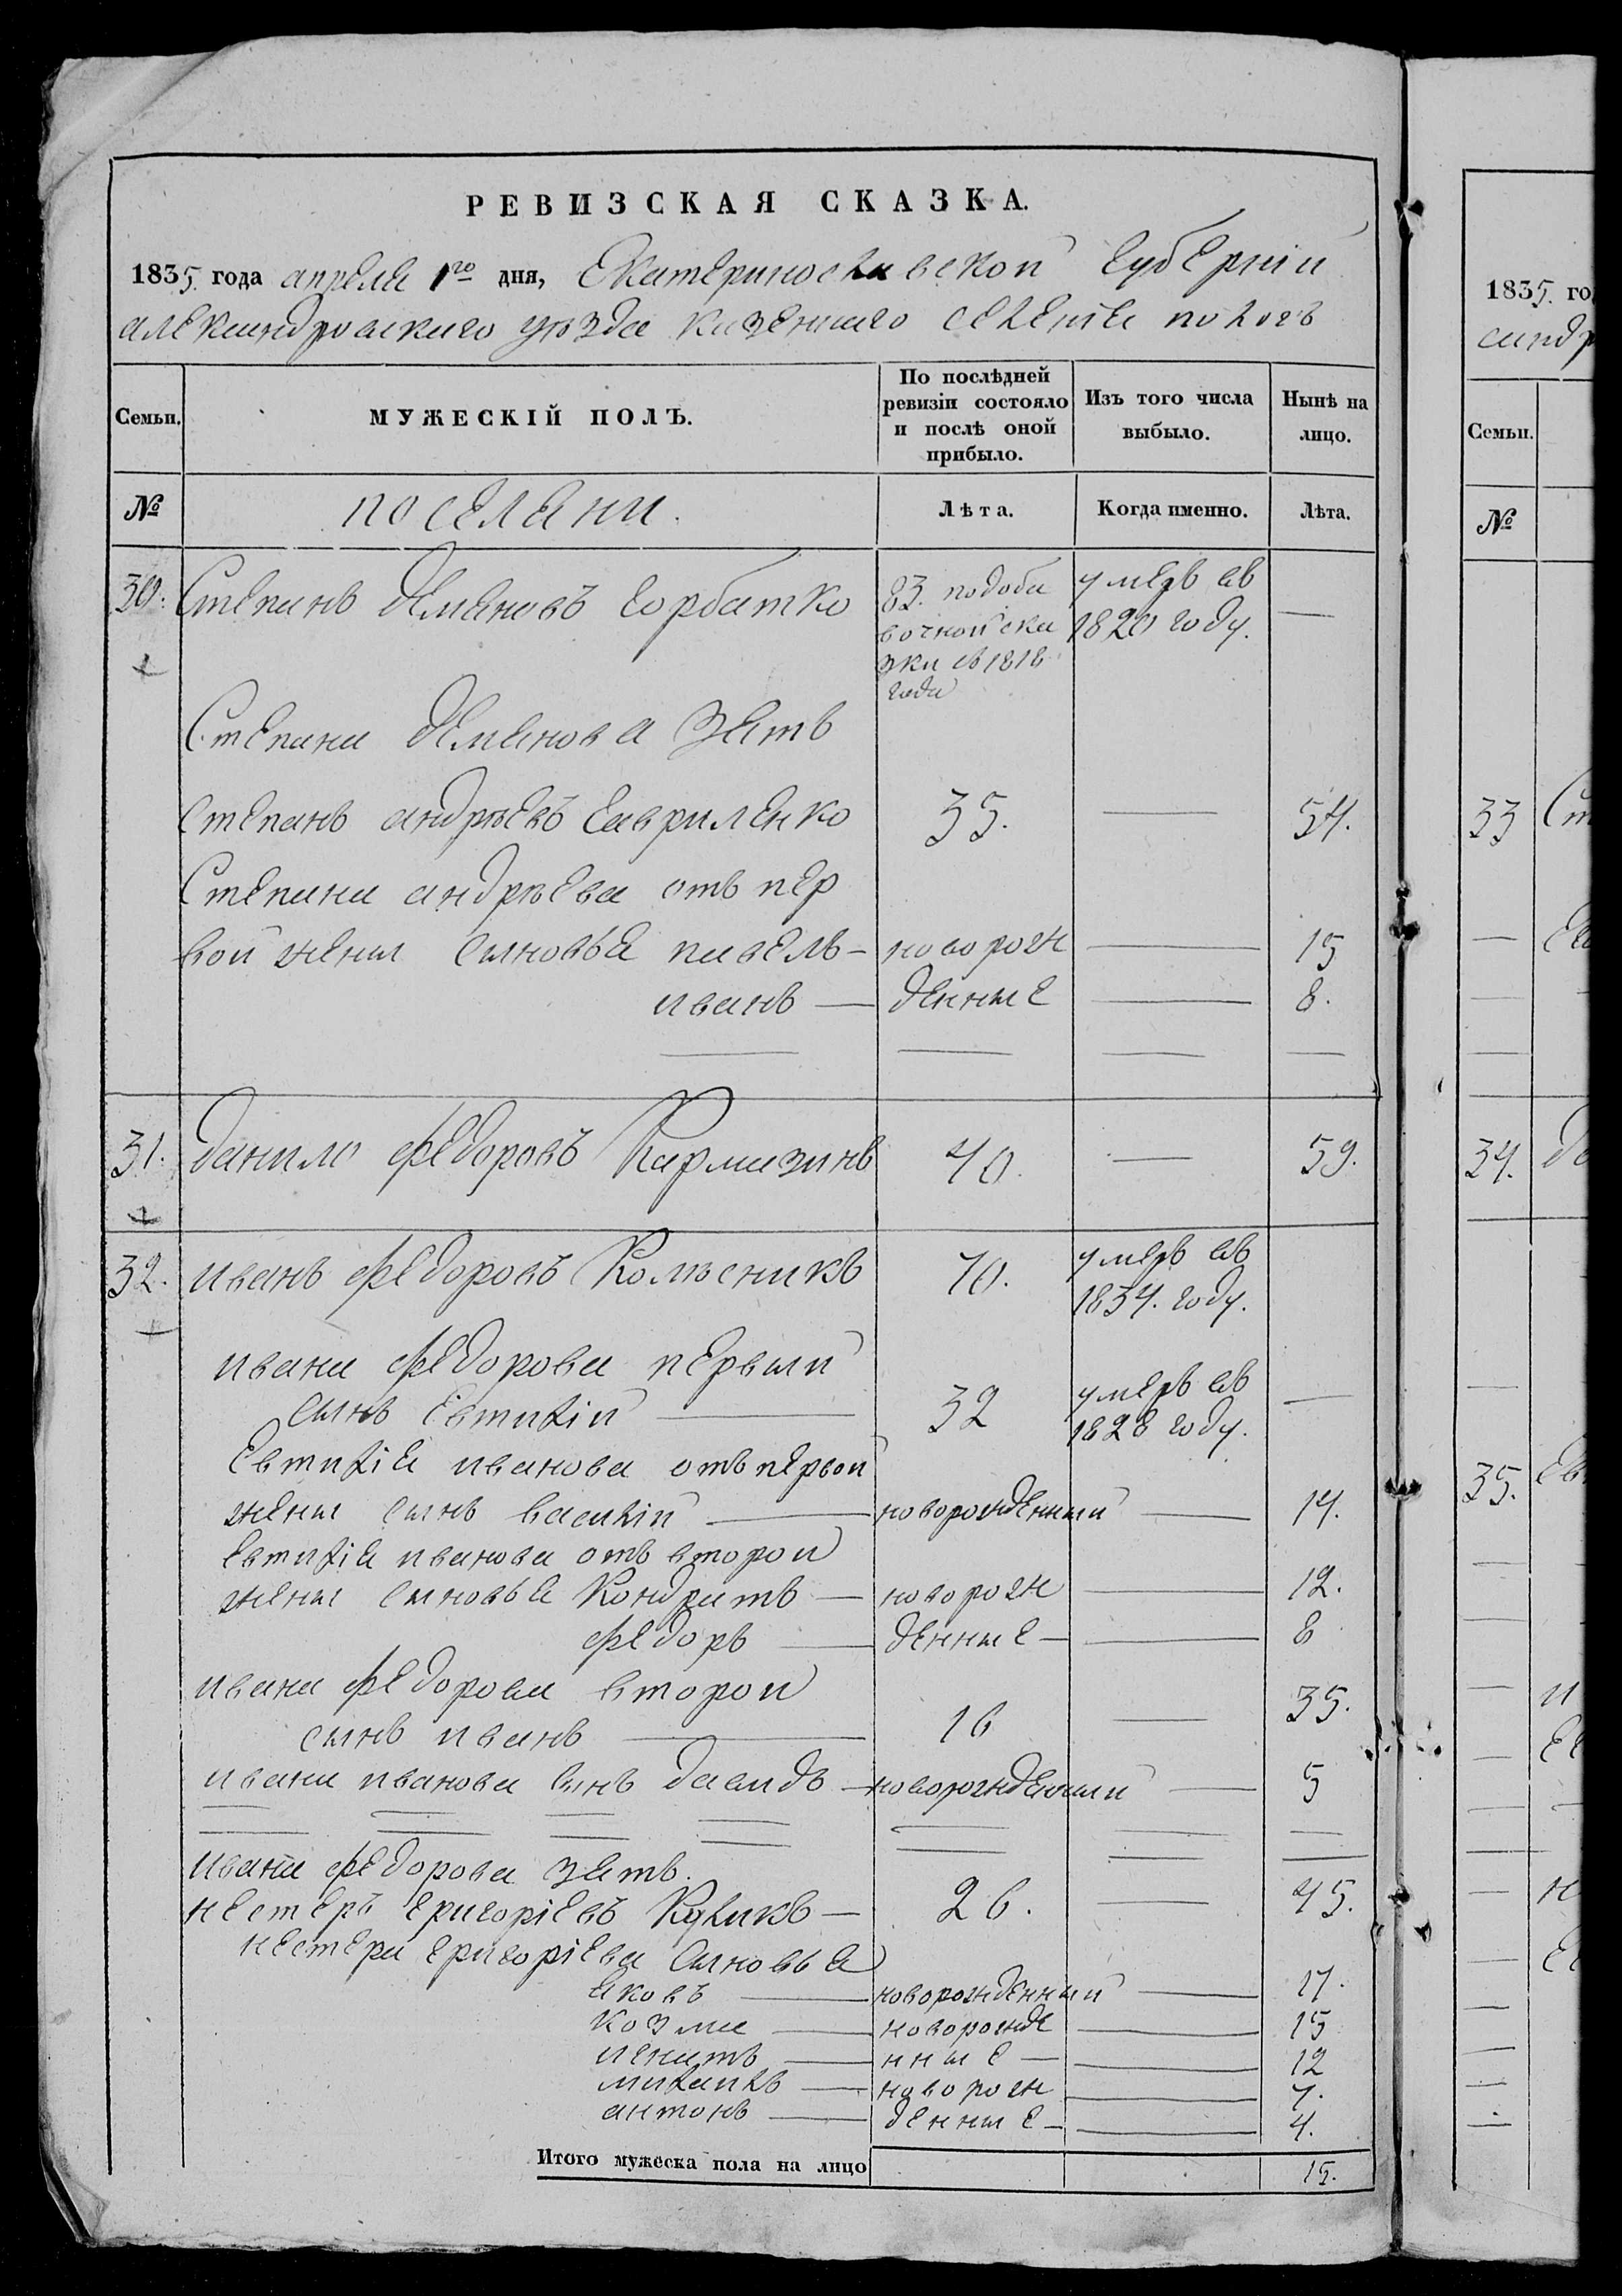 РЕВИЗСКАЯ СКАЗКА.
1835. года апреля 1го дня, Екатеринославской губернии
александровскаго уезда казеннаго селения пологъ
Семьи.
МУЖЕСКІЙ ПОЛЪ.
По послѣдней ревизіи состояло и послѣ оной прибыло.
Изъ того числа выбыло.
Нынѣ на лицо.
№
поселяни.
Лѣта.
Когда именно.
Лѣта.
30. Степанъ демяновъ горбатко 83. подоба умеръ въ —
вочной ска 1820 году.
зки въ 1818
года
Степана демянова зять
степанъ андрѣевъ гавриленко 35. — 54.
Степана андрѣева отъ пер
вой жены сыновья павелъ — новорож — 15
иванъ — денные — 8.
31. данило федоровъ Кармазинъ 40. — 59.
32. иванъ федоровъ Колѣсникъ 70. умеръ въ
1834. году.
ивана федорова первый
сынъ Евтихій — 32 умеръ въ —
1828 году.
Евтихія иванова отъ первой
жены сынъ василій — новорожденный — 14.
Евтихія иванова отъ второй
жены сыновья Кондратъ — новорож — 12.
федоръ — денные — 8
ивана федорова второй
сынъ иванъ — 16 — 35.
ивана иванова сынъ давидъ — новорожденный — 5
ивана федорова зять.
нестеръ григоріевъ Куликъ — 26. — 45.
нестера григоріева сыновья
яковъ — новорожденный — 17.
козма — новорожде — 15
игнатъ — нные — 12
михаилъ — новорож — 7.
антонъ — денные — 4.
Итого мужеска пола на лицо 15.
1835. го
сандр
Семьи.
№
33 Ст
34.
35. Ев